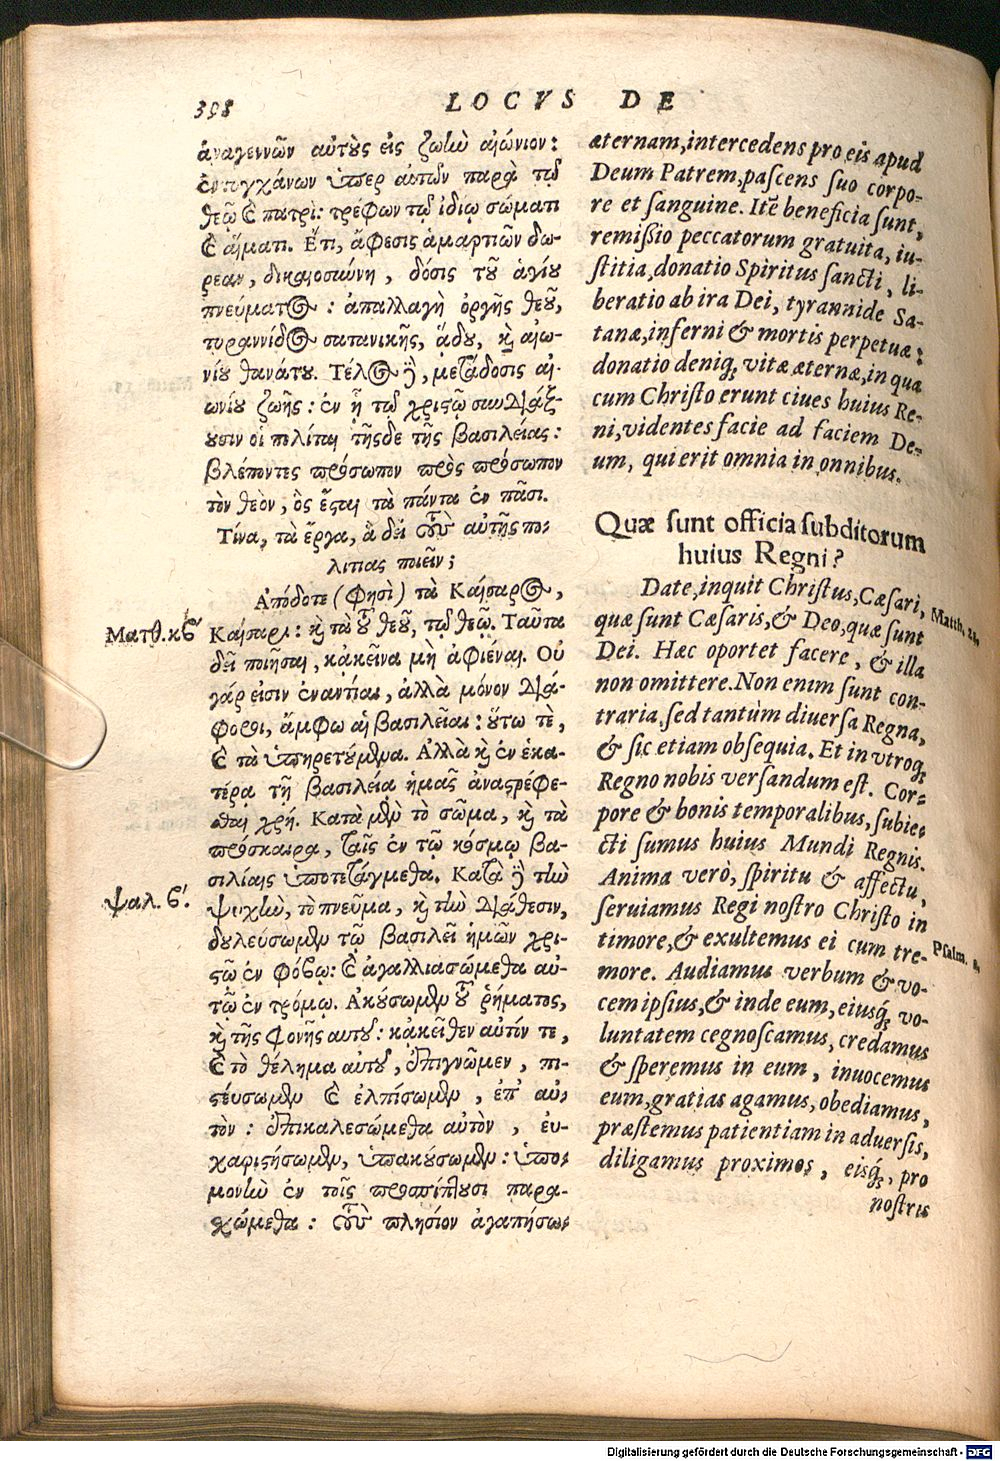 398
LOCVS DE
ἀναγεννῶν αὐτοὺς εἰς ζωὴν αἰώνιον:
ἐντυγχάνων ὑπὲρ αὐτῶν παρὰ τῷ
θεῷ καὶ πατρὶ: τρέφων τῷ ἰδίῳ σώματι
καὶ αἵματι. Ἔτι, ἄφεσις ἁμαρτιῶν δω-
ρεαν, δικαιοσύνη, δόσις τοῦ ἁγίου
πνεύματος: ἀπαλλαγὴ ὀργῆς θεοῦ,
τυραννίδος σατανικῆς, ᾅδου, καὶ αἰω-
νίου θανάτου. Τέλος δὲ, μετάδοσις αἰ-
ωνίου ζωῆς: ἐν ᾗ τῷ χριστῷ συνδιάξ-
ουσιν οἱ πολίται τῆσδε τῆς βασιλείας:
βλέποντες πρόσωπον πρὸς πρόσωπον
τὸν θεὸν, ὃς ἔσται τὰ πάντα ἐν πᾶσι.
Τίνα, τὰ ἔργα, ἃ δεῖ τοὺς αὐτῆς πο-
λίτας ποιεῖν;
Ἀπόδοτε (φησὶ) τὰ Καίσαρος,
Ματθ. κβʹ
Καίσαρι: καὶ τὰ τοῦ θεοῦ, τῷ θεῷ. Ταῦτα
δεῖ ποιῆσαι, κἀκεῖνα μὴ ἀφιέναι. Οὐ
γάρ εἰσιν ἐναντίαι, ἀλλὰ μόνον διά-
φοροι, ἄμφω αἱ βασιλεῖαι: οὕτω τὲ,
καὶ τὰ ὑπηρετούμενα. Ἀλλὰ καὶ ἐν ἑκα-
τέρᾳ τῇ βασιλείᾳ ἡμᾶς ἀναστρέφε-
σθαι χρή. Κατὰ μὲν τὸ σῶμα, καὶ τὰ
πρόσκαιρα, ταῖς ἐν τῷ κόσμῳ βα-
σιλίαις ὑποτετάγμεθα. Κατὰ δὲ τὴν
ψαλ. βʹ.
ψυχὴν, τὸ πνεῦμα, καὶ τὴν διάθεσιν,
δουλεύσωμεν τῷ βασιλεῖ ἡμῶν χρι-
στῷ ἐν φόβῳ: καὶ ἀγαλλιασώμεθα αὐ-
τῷ ἐν τρόμῳ. Ἀκούσωμεν τοῦ ῥήματος,
καὶ τῆς φονῆς αυτοῦ: κἀκεῖθεν αὐτόν τε,
καὶ τὸ θέλημα αὐτοῦ, ἐπιγνῶμεν, πι-
στεύσωμεν καὶ ἐλπίσωμεν, ἐπ' αὐ-
τὸν: ἐπικαλεσώμεθα αὐτὸν, εὐ-
χαριστήσωμεν, ὑπακούσωμεν: ὑπο-
μονὴν ἐν τοῖς προσπίπτουσι παρα-
χώμεθα: τοὺς πλησίον ἀγαπήσω-
æternam, intercedens pro eis apud
Deum Patrem, pascens suo corpo-
re et sanguine. Itē beneficia sunt,
remißio peccatorum gratuita, iu-
stitia, donatio Spiritus sancti, li-
beratio ab ira Dei, tyrannide Sa-
tanæ, inferni & mortis perpetuæ:
donatio deniq;, vitæ æternæ, in qua
cum Christo erunt ciues huius Re-
ni, videntes facie ad faciem De-
um, qui erit omnia in onnibus.
Quæ sunt officia subditorum
huius Regni?
Date, inquit Christus, Cæsari,
Matth. 22.
quæ sunt Cæsaris, & Deo, quæ sunt
Dei. Hæc oportet facere, & illa
non omittere. Non enim sunt con-
traria, sed tantùm diuersa Regna,
& sic etiam obsequia. Et in vtroq;
Regno nobis versandum est. Cor-
pore & bonis temporalibus, subie-
cti sumus huius Mundi Regnis.
Anima verò, spiritu & affectu,
seruiamus Regi nostro Christo in
timore, & exultemus ei cum tre-
Psalm.
more. Audiamus verbum & vo-
cem ipsius, & inde eum, eiusq́; vo-
luntatem cegnoscamus, credamus
& speremus in eum, inuocemus
eum, gratias agamus, obediamus,
præstemus patientiam in aduersis,
diligamus proximos, eisq́;, pro
nostris
Digitalisierung gefördert durch die Deutsche Forschungsgemeinschaft - DFG